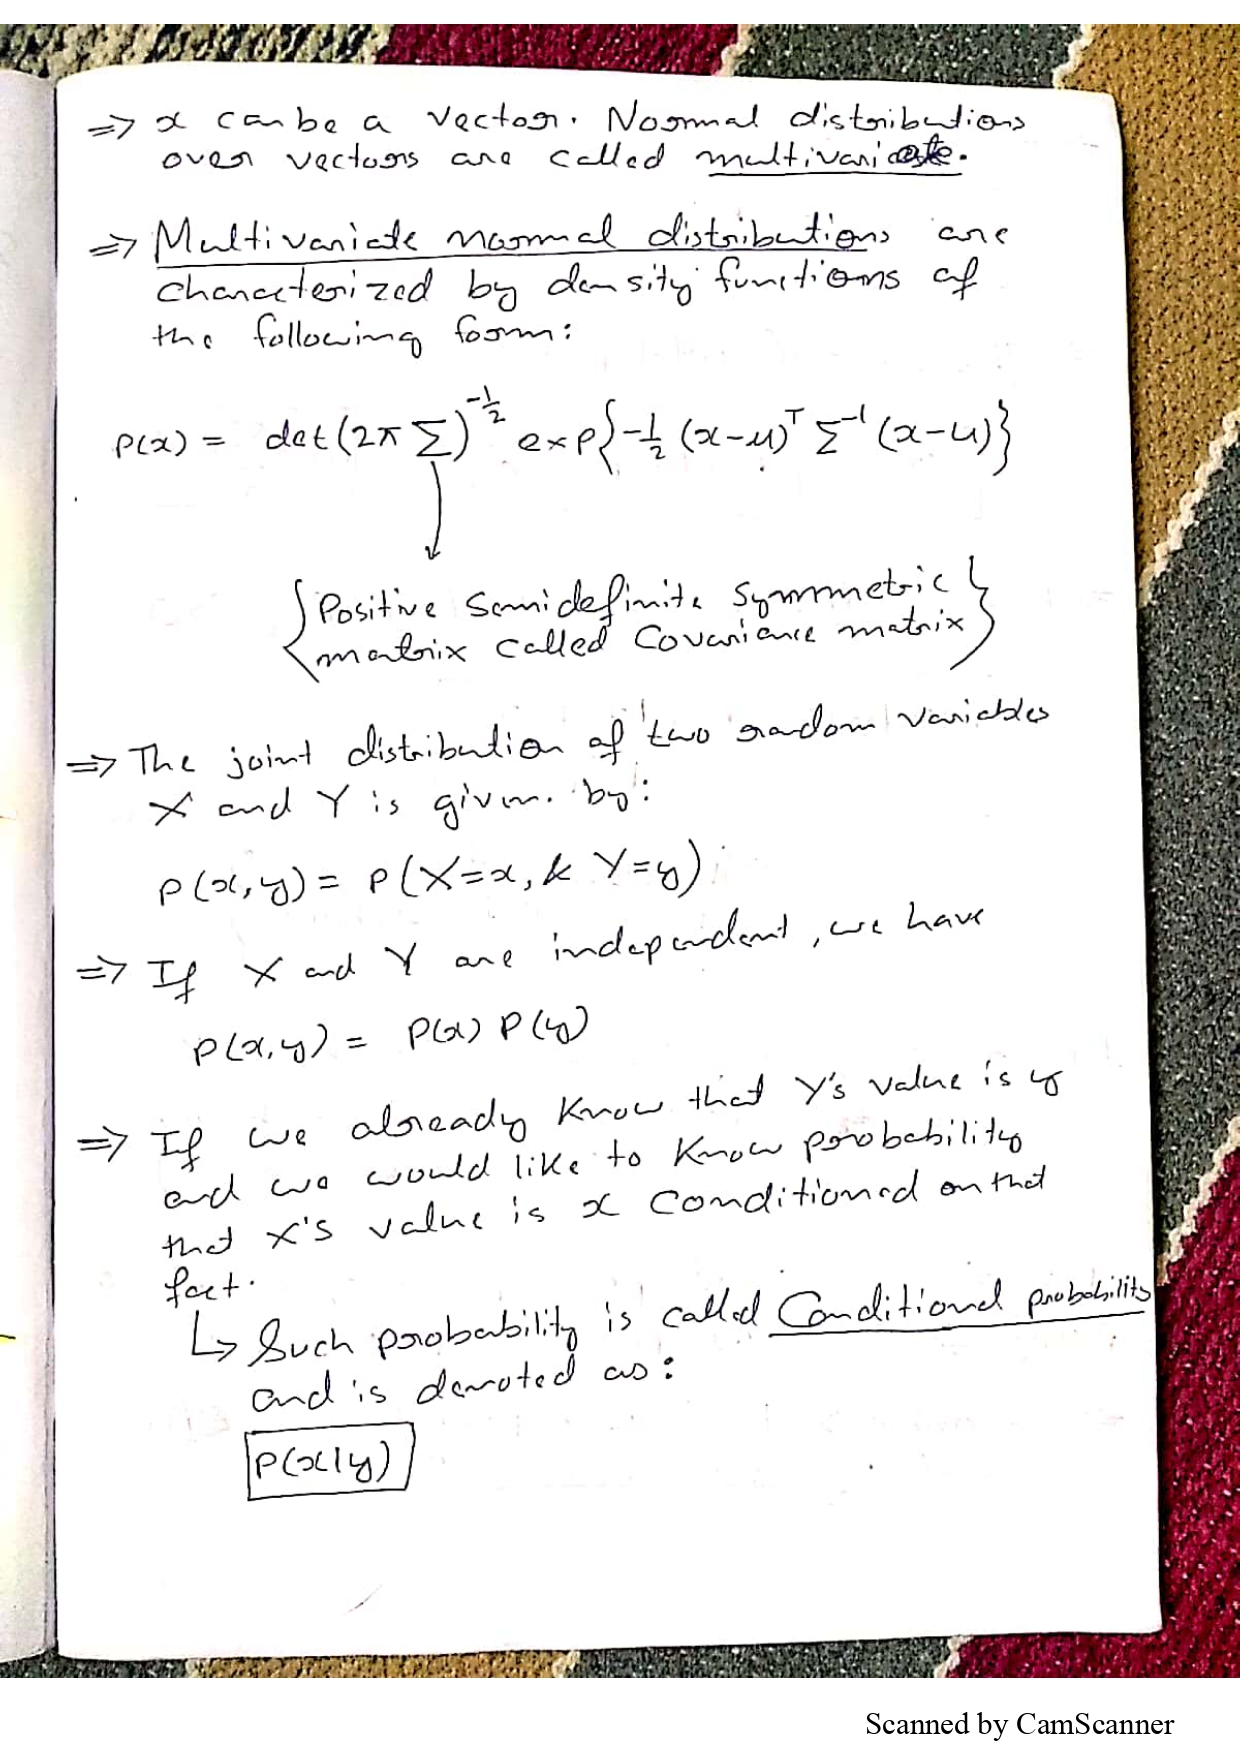 ⇒ x can be a vector. Normal distributions
over vectors are called multivariate.
⇒ Multivariate normal distributions are
characterized by density functions of
the following form:
P(x) = det(2π Σ)^{-1/2} exp{-1/2 (x-μ)^T Σ^{-1} (x-μ)}
{Positive Semidefinite Symmetric
matrix called Covariance matrix}
⇒ The joint distribution of two random variables
X and Y is given by:
P(x,y) = P(X=x, & Y=y)
⇒ If X and Y are independent, we have
P(x,y) = P(x) P(y)
⇒ If we already know that Y's value is y
and we would like to know probability
that X's value is x conditioned on that
fact.
↳ Such probability is called Conditional probability
and is denoted as:
P(x|y)
Scanned by CamScanner